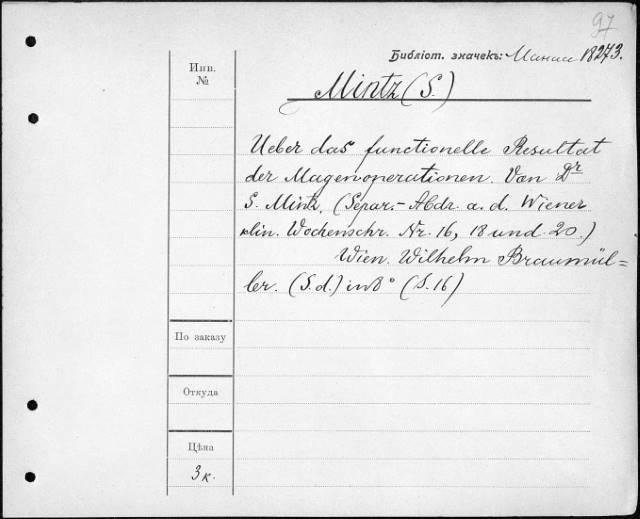 97
Библіот. значекъ: Манас 18273.
Инв.
№
Mintz (S.)
Ueber das functionelle Resultat
der Magenoperationen. Van Dr
S. Mintz. (Separ.-Abdr. a. d. Wiener
klin. Wochenschr. Nr. 16, 18 und 20.)
Wien. Wilhelm Braumül=
ler. (S. d.) in 8° (S. 16)
По заказу
Откуда
Цѣна
3 к.